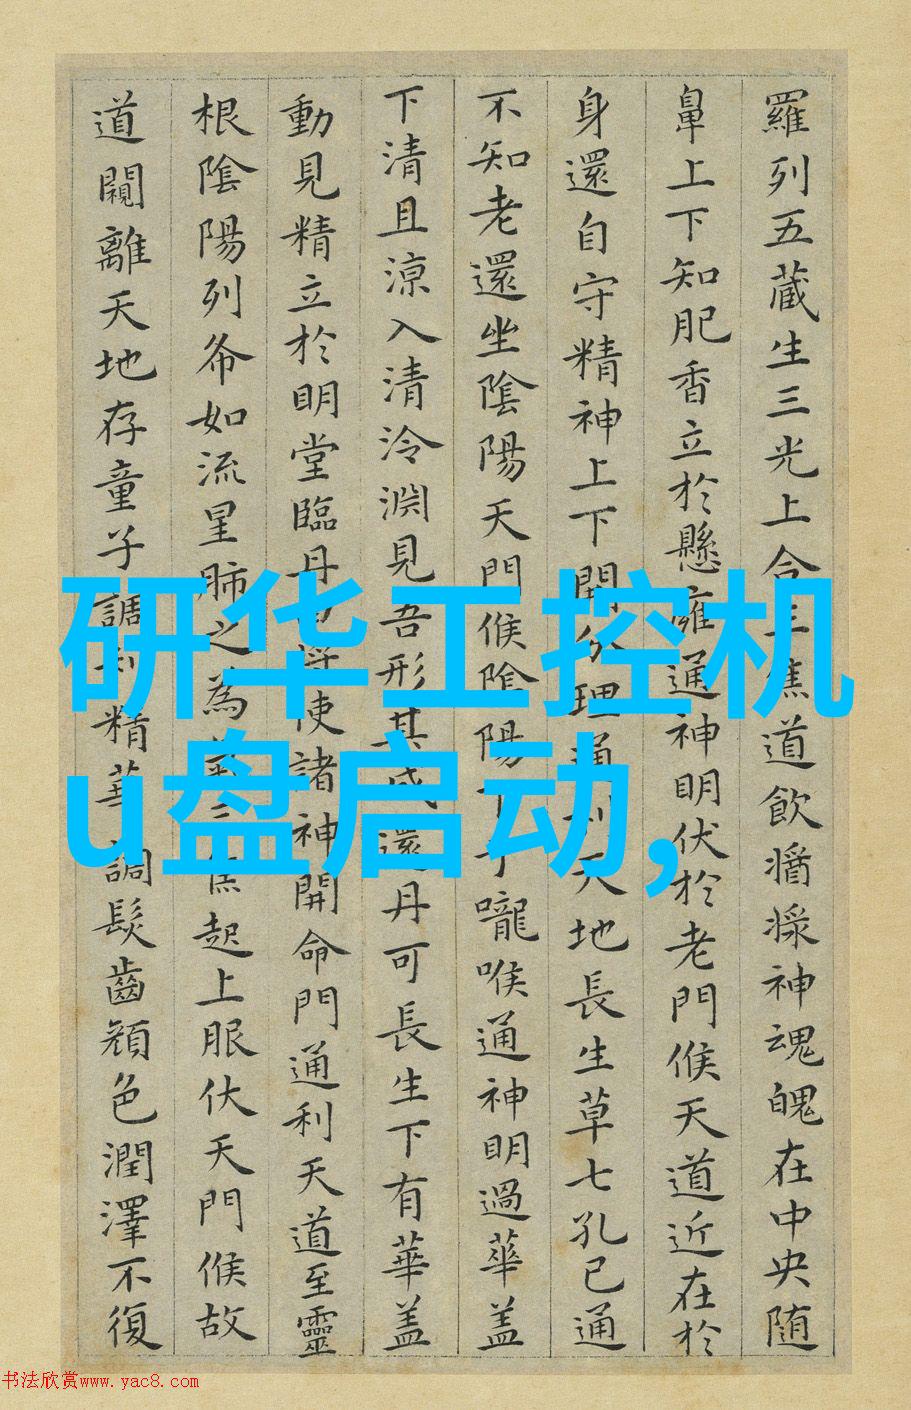 羅列五藏生三光上合三焦道飲醬漿神魂魄在中央随
鼻上下知肥香立於懸雍通神明伏於老門候天道近在於
身還自守精神上下開分理通利天地長生草七孔已通
不知老還坐陰陽天門候陰陽下于嚨喉通神明過華盖
下清且涼入清泠渕見吾形其成還丹可長生下有華盖
動見精立於明堂臨丹田将使諸神開命門通利天道至靈
根陰陽列布如流星肺之為氣三焦起上服伏天門候故
道闚離天地存童子調利精華調髮齒顔色潤澤不復
研华工控机
u盘启动,
书法欣赏www.yac8.com